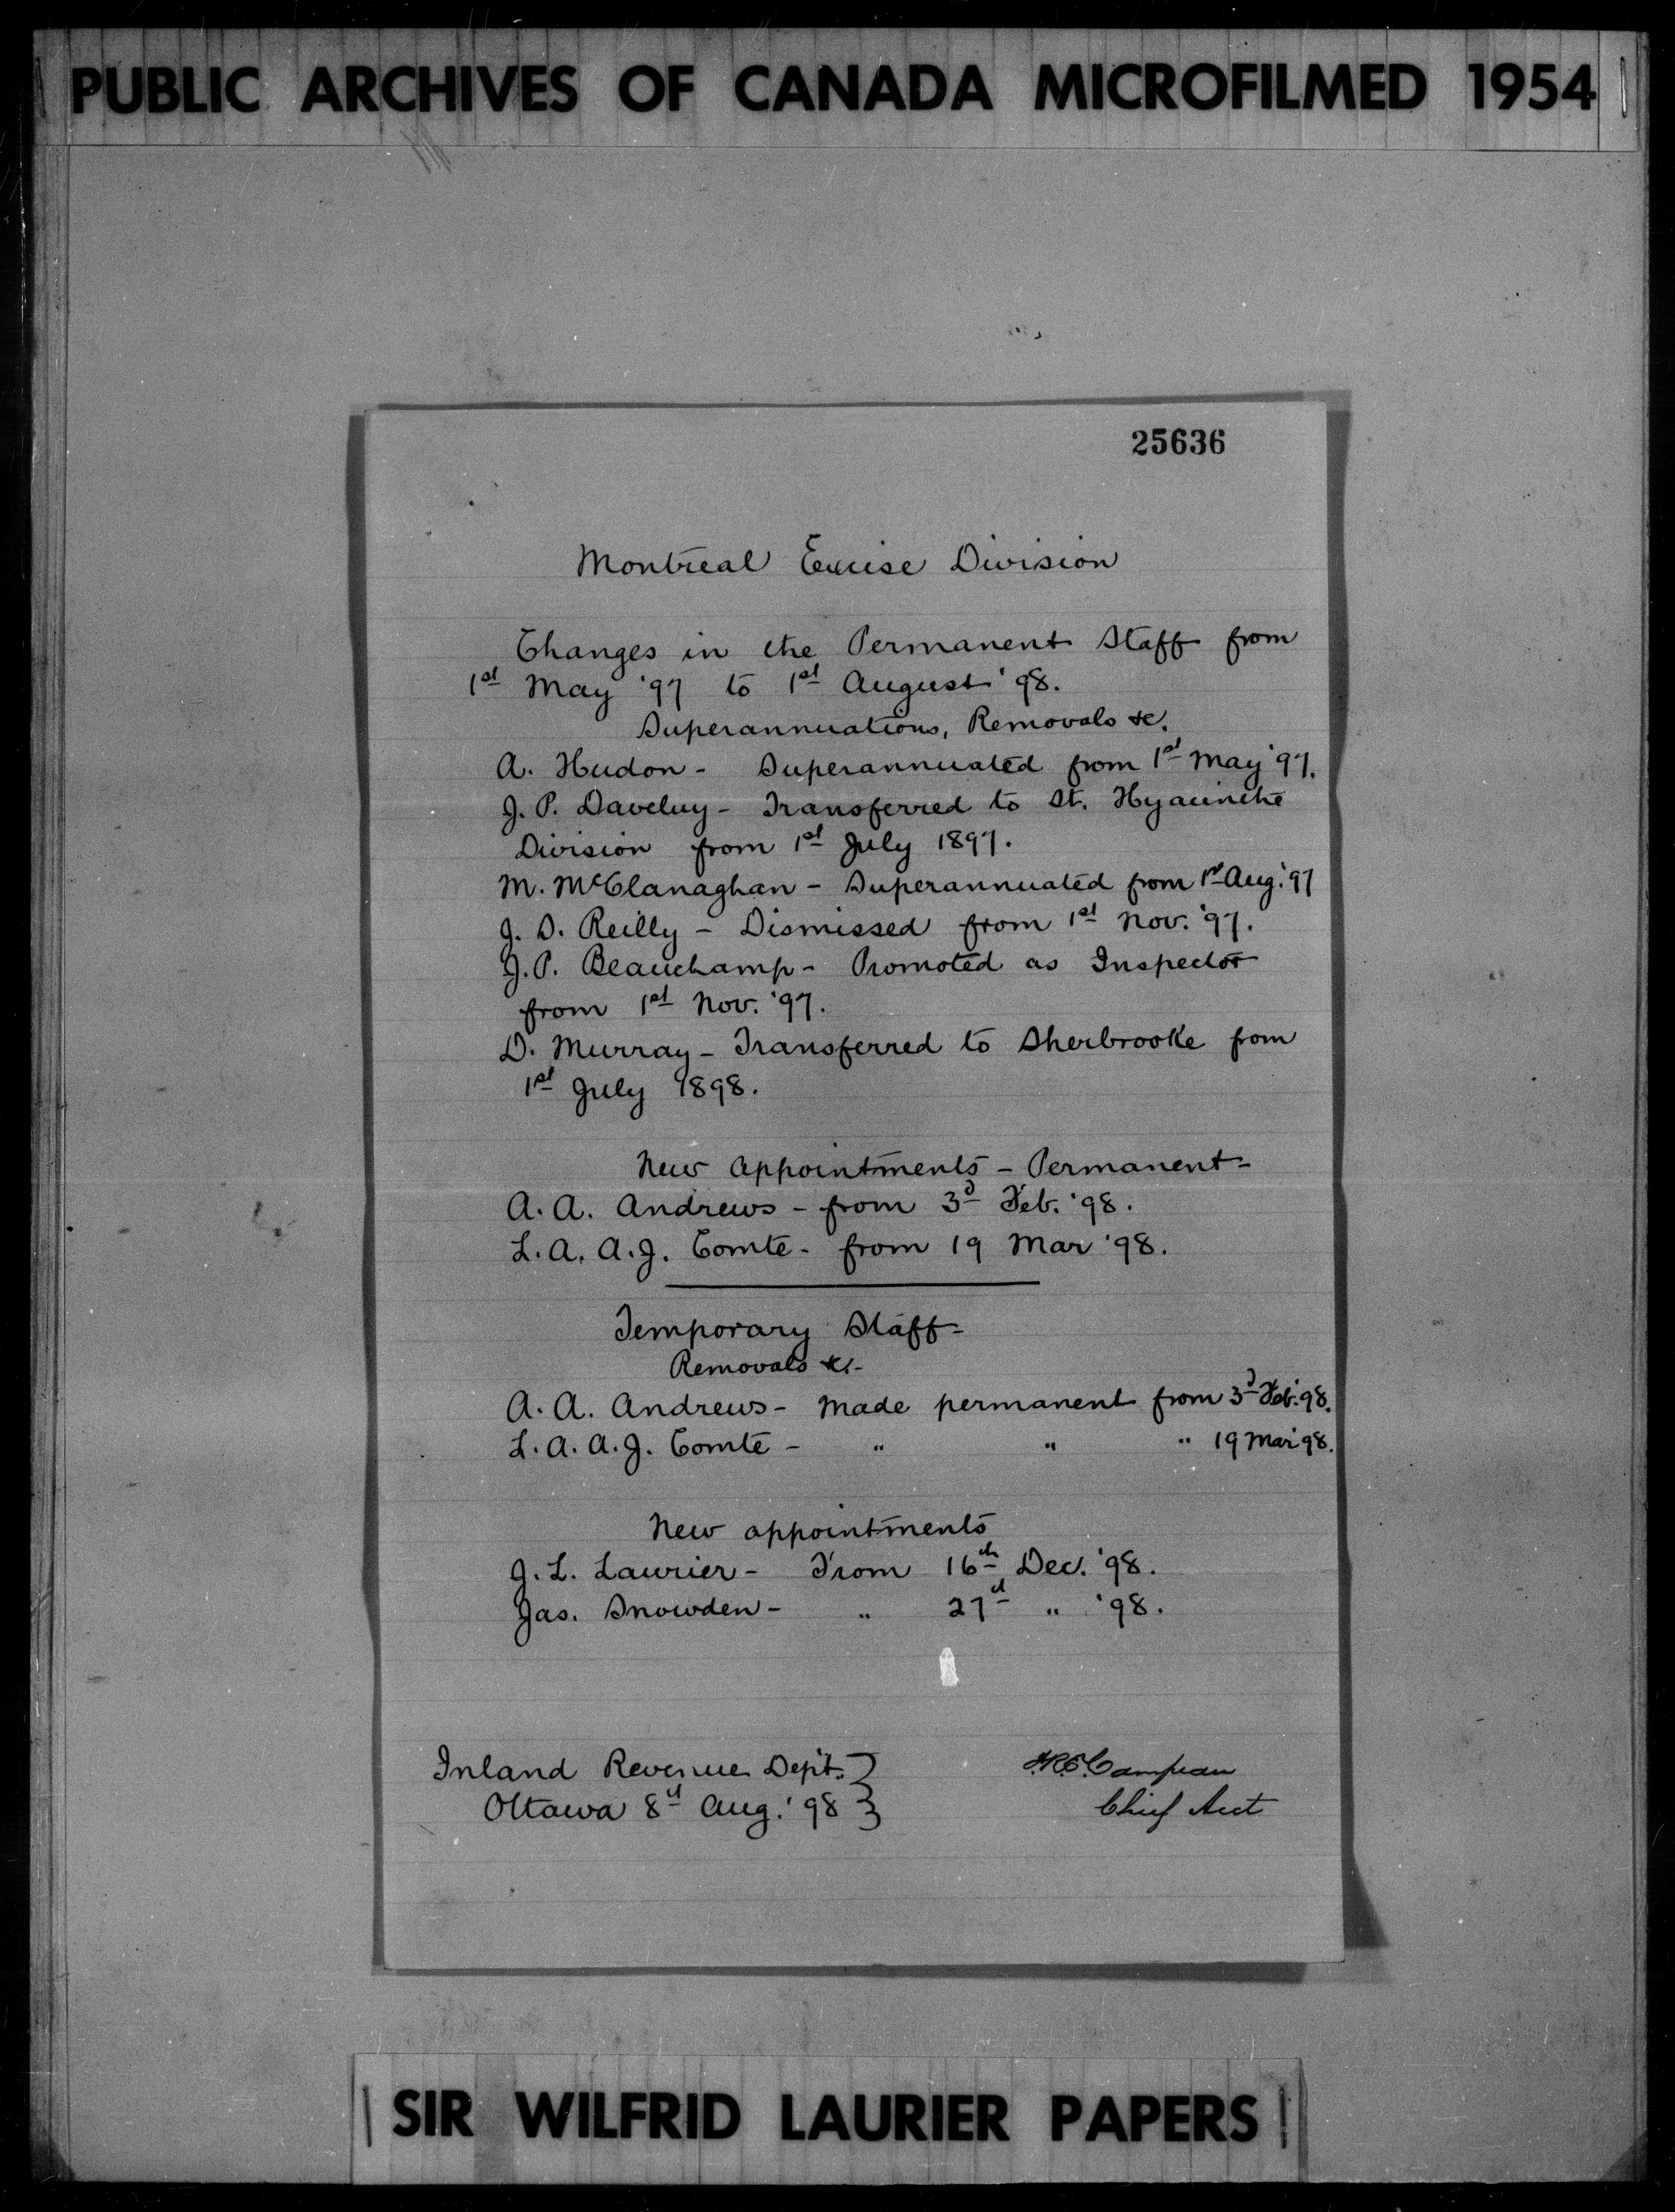 PUBLIC ARCHIVES OF CANADA MICROFILMED 1954
25636
Montreal Excise Division
Changes in the Permanent Staff from
1st May '97 to 1st August '98.
Superannuations, Removals &c.
A. Hudon - Superannuated from 1st May '97.
J. P. Daveluy - Transferred to St. Hyacinthe
Division from 1st July 1897.
M. McClanaghan - Superannuated from 1st Aug. '97
J. D. Reilly - Dismissed from 1st Nov. '97.
J. P. Beauchamp - Promoted as Inspector
from 1st Nov. '97.
D. Murray - Transferred to Sherbrooke from
1st July 1898.
New appointments - Permanent -
A. A. Andrews - from 3d Feb. '98.
L. A. A. J. Comte - from 19 Mar '98.
Temporary Staff -
Removals &c. -
A. A. Andrews - Made permanent from 3d Feb. '98.
L. A. A. J. Comte - " " " 19 Mar '98.
New appointments
J. L. Laurier - From 16th Dec. '98.
Jas. Snowden - " 27d " '98.
Inland Revenue Dept. }
Ottawa 8d Aug. '98 }
F.R.E. Campeau
Chief Acct
SIR WILFRID LAURIER PAPERS